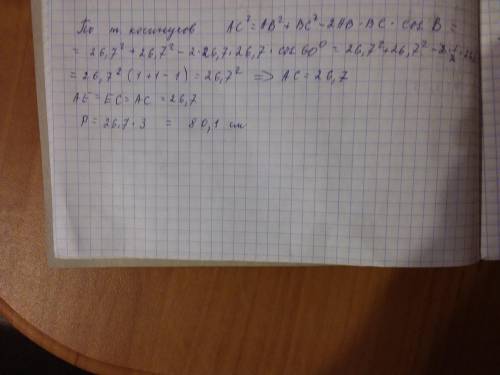 По т. косинусов AC² = AB² + BC² - 2AB · BC · cos B =
= 26,7² + 26,7² - 2 · 26,7 · 26,7 · cos 60° = 26,7² + 26,7² - 2 · 1/2 ·
= 26,7² (1 + 1 - 1) = 26,7² => AC = 26,7
AE = EC = AC = 26,7
P = 26,7 · 3 = 80,1 см